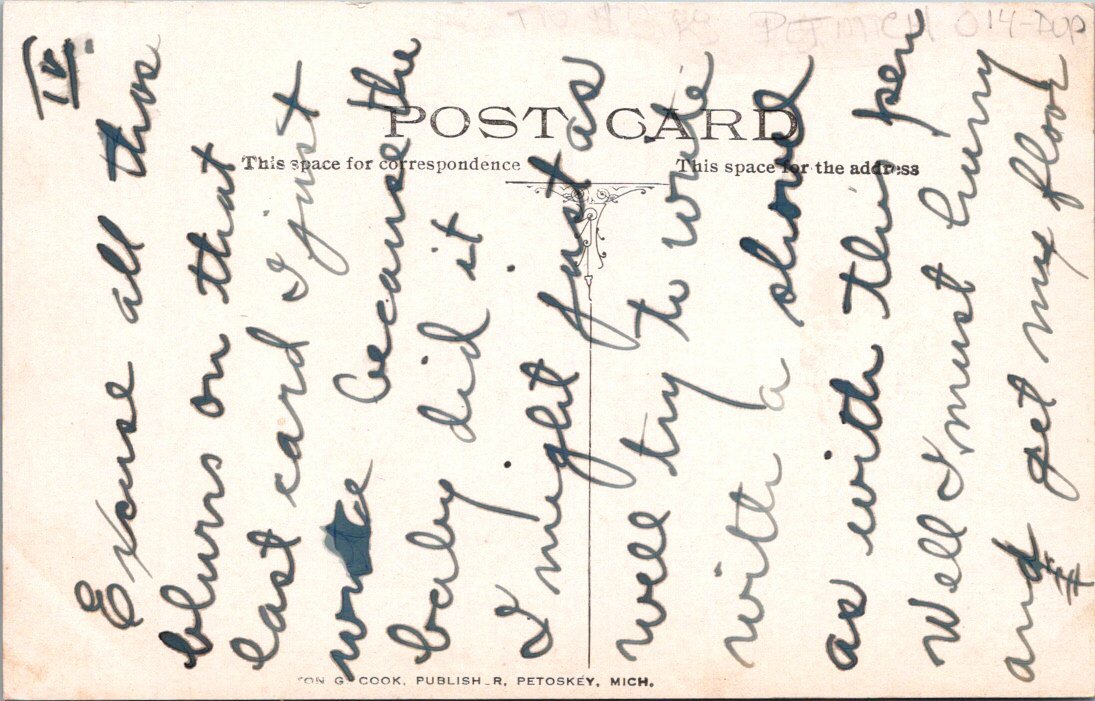 IV.
PET MICH 014-DUP
POST CARD
This space for correspondence
This space for the address
Excuse all thos
blurs on that
last card I just
wrote because the
baby did it.
I might just as
well try to write
with a shovel
as with this pen
Well I must hurry
and get my floor
G. COOK, PUBLISH_R, PETOSKEY, MICH.